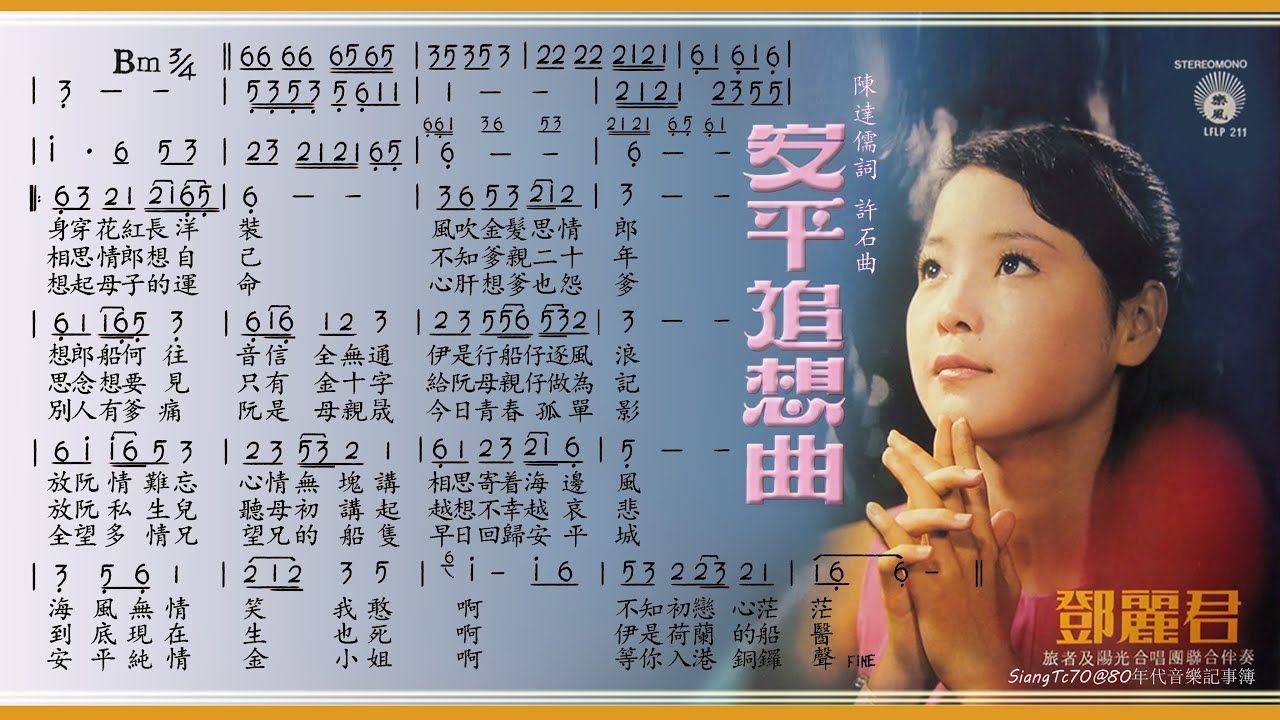 Bm 3/4 ‖ 66 66 6565 | 35353 | 22 22 2121 | 61 61 61 |
3 — — | 5353 5611 | 1 — — | 2121 2355 |
661 36 53 2121 65 61
i · 6 53 | 23 212165 | 6 — — | 6 — — |
63 21 2165 | 6 — — | 36 53 212 | 3 — —
身穿花紅長洋 裝 風吹金髮思情 郎
相思情郎想自 己 不知爹親二十 年
想起母子的運 命 心肝想爹也怨 爹
| 61 165 3 | 616 12 3 | 23 556 532 | 3 — —
想郎船何 往 音信 全無通 伊是行船仔逐風 浪
思念想要 見 只有 金十字 給阮母親仔做為 記
別人有爹 痛 阮是 母親晟 今日青春 孤單 影
| 6i i65 3 | 23 532 1 | 61 23 21 6 | 5 — —
放阮 情 難忘 心情 無 塊講 相思寄着海 邊 風
放阮 私 生兒 聽母初 講起 越想不幸越 哀 悲
全望 多 情兄 望兄的 船隻 早日回歸安 平 城
| 3 56 1 | 212 3 5 | 6 i — i6 | 53 223 21 | i6 6 — ‖
海 風無情 笑 我憨 啊 不知初戀 心茫 茫
到 底現在 生 也死 啊 伊是荷蘭 的船 醫
安 平純情 金 小姐 啊 等你入港 銅鑼 聲 FINE
安平追想曲
陳達儒詞 許石曲
STEREOMONO
樂風
LFLP 211
鄧麗君
旅者及陽光合唱團聯合伴奏
SiangTc70@80年代音樂記事簿